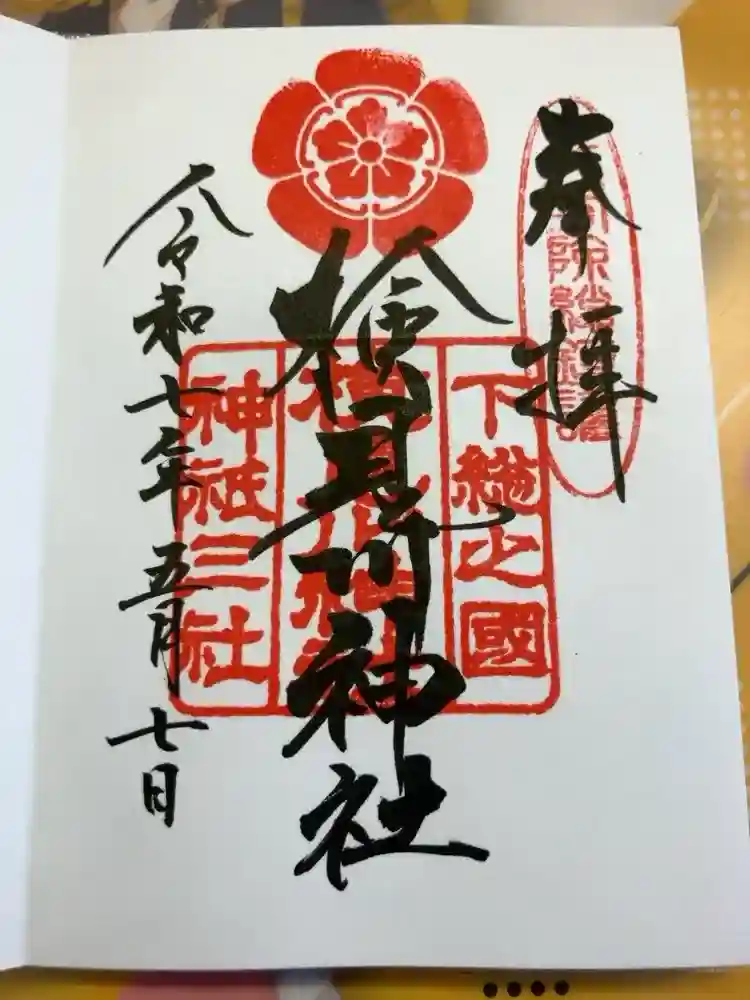 奉拝
下総之國
検見川神社
神社三社
令和七年五月七日